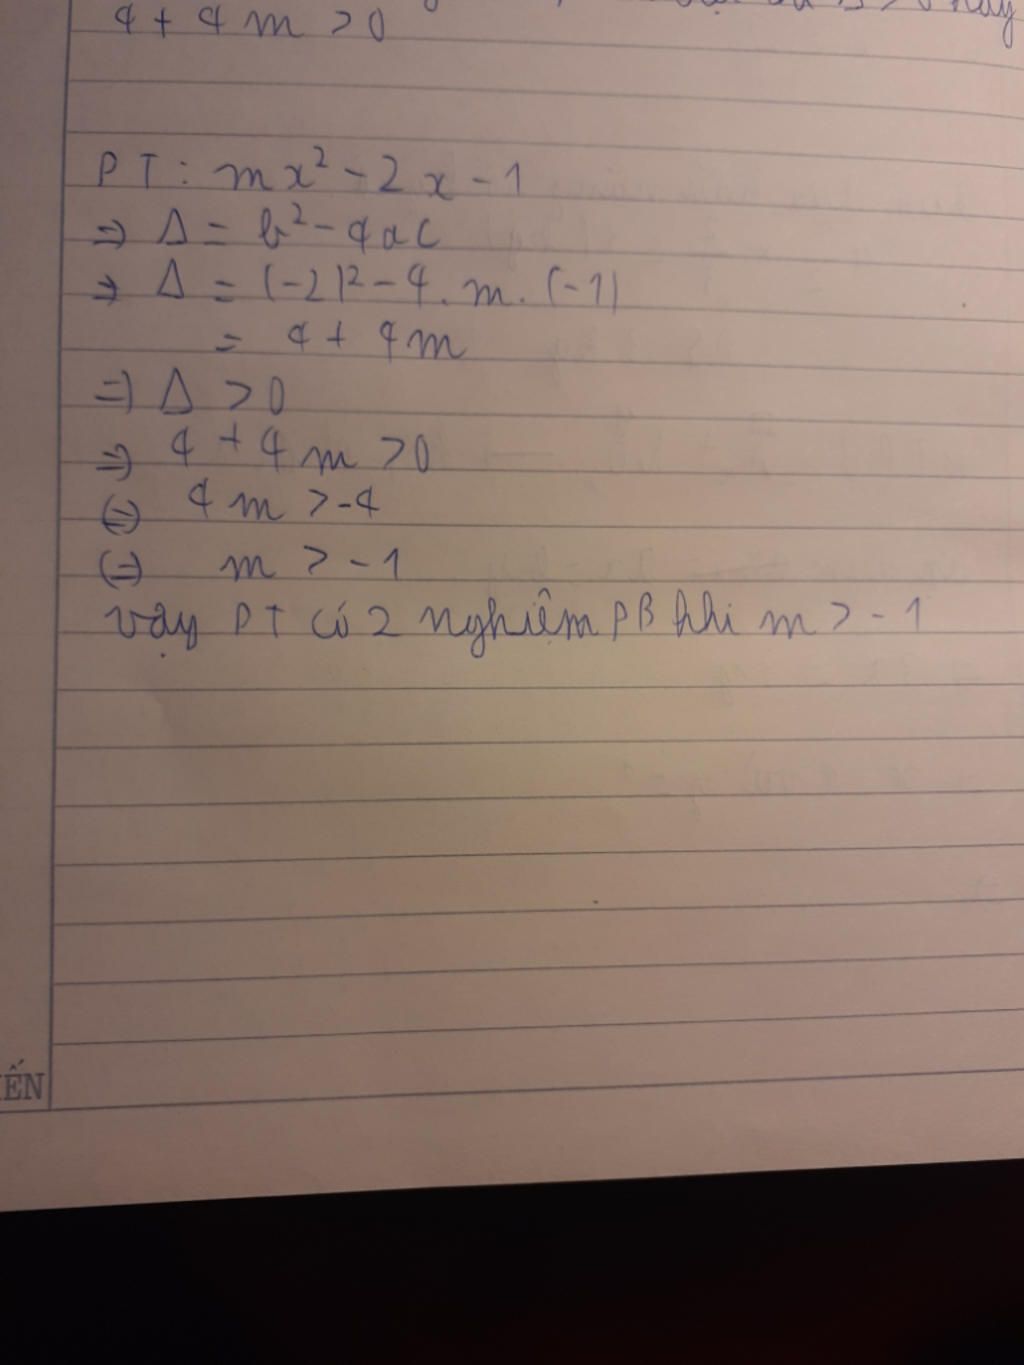 > 0 hay
4 + 4 m > 0
PT : mx² - 2x - 1
=> Δ = b² - 4ac
=> Δ = (-2)² - 4 . m . (-1)
= 4 + 4m
=> Δ > 0
=> 4 + 4m > 0
(=) 4m > -4
(=) m > -1
vậy PT có 2 nghiệm PB khi m > -1
ẾN